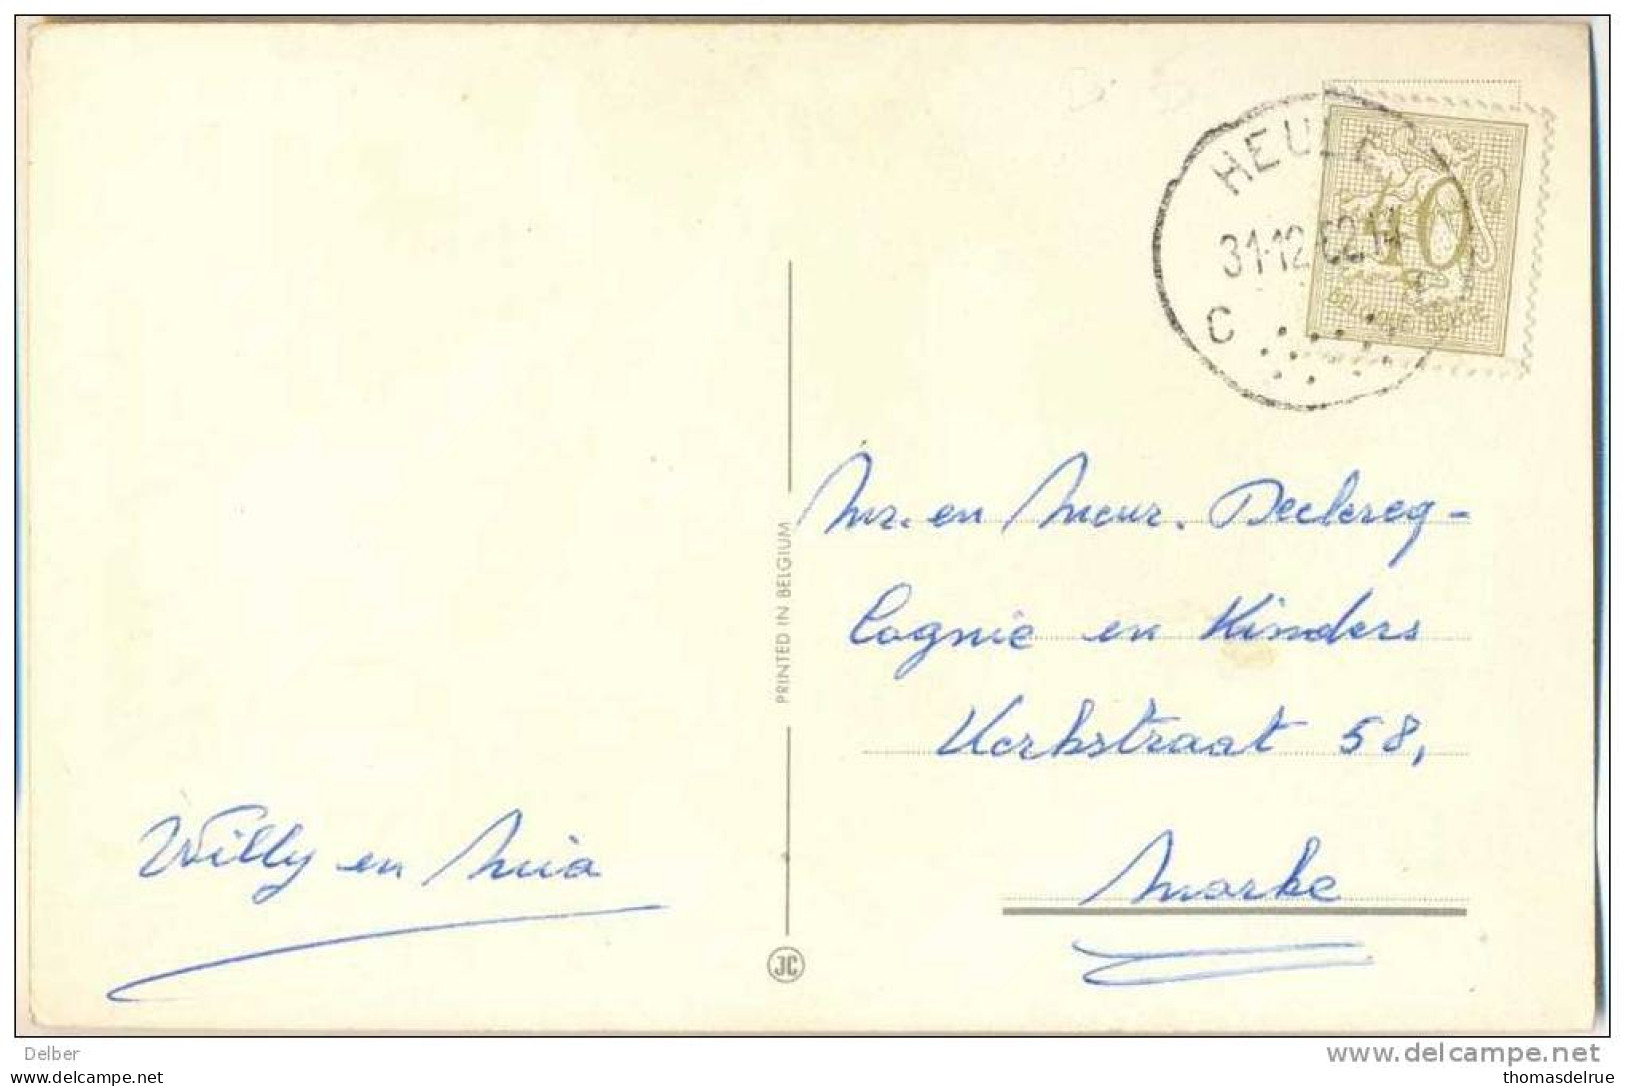 HEULE
31-12 62 14
C
10
BELGIQUE BELGIE
Mr. en Mevr. Declercq-
Cagnie en Kinders
Kerkstraat 58,
Marke
Willy en Mia
PRINTED IN BELGIUM
JC
Delber
www.delcampe.net
postcard.be
thomasdelrue